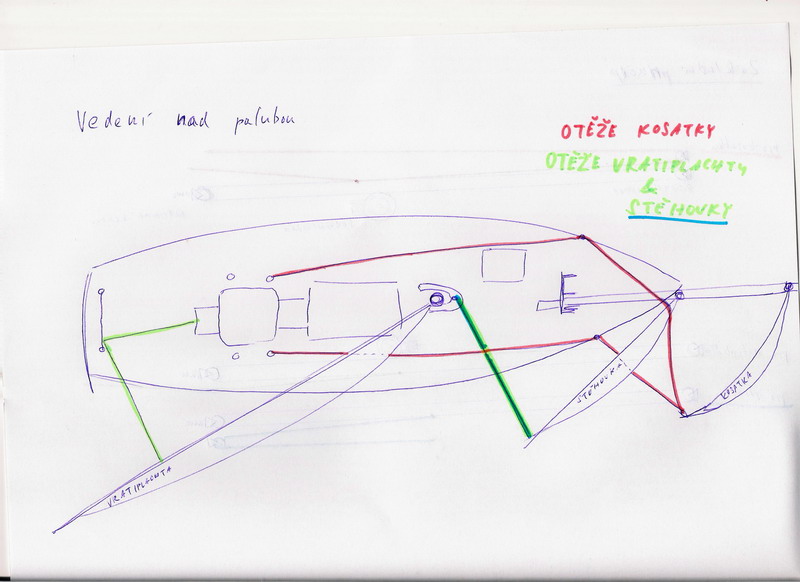 Vedení nad palubou
OTĚŽE KOSATKY
OTĚŽE VRATIPLACHTY
&
STĚHOVKY
STĚHOVKA
KOSATKA
VRATIPLACHTA